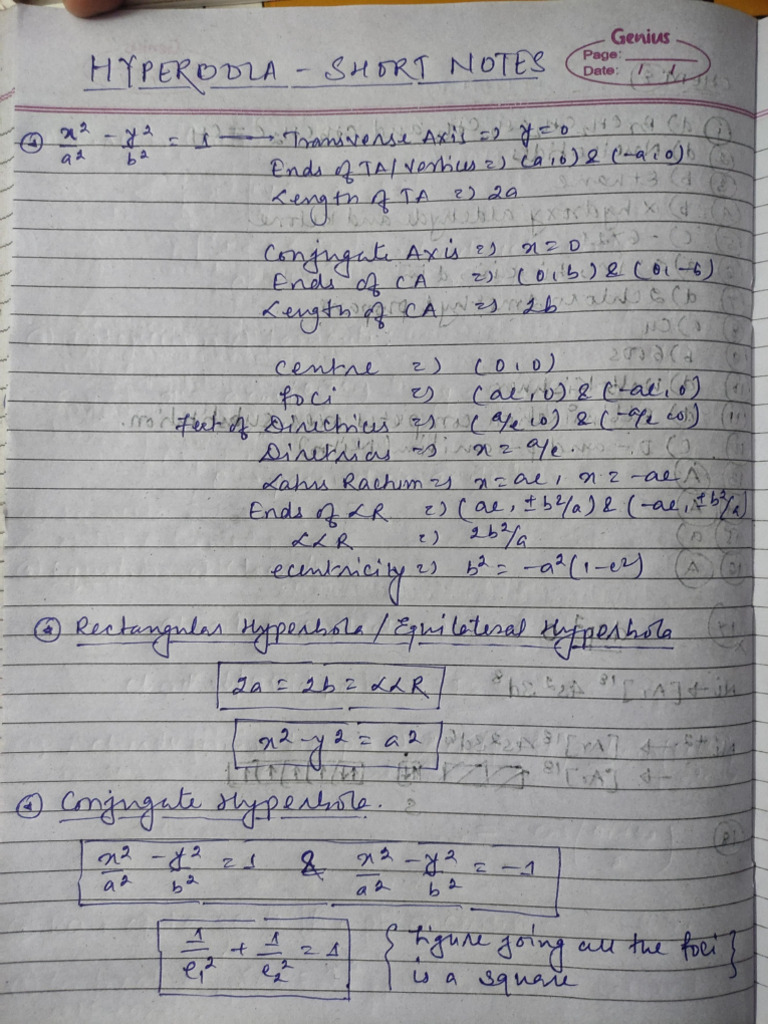 Genius
Page:
Date:
HYPERBOLA - SHORT NOTES
x²/a² - y²/b² = 1 → Transverse Axis => y=0
Ends of TA/Vertices => (a,0) & (-a,0)
Length of TA => 2a
Conjugate Axis => x=0
Ends of CA => (0,b) & (0,-b)
Length of CA => 2b
Centre => (0,0)
foci => (ae,0) & (-ae,0)
Feet of Directrices => (a/e,0) & (-a/e,0)
Directrices => x=a/e.
Latus Rectum => x=ae, x=-ae
Ends of LR => (ae, ±b²/a) & (-ae, ±b²/a)
LLR => 2b²/a
eccentricity => b² = -a²(1-e²)
Rectangular Hyperbola/Equilateral Hyperbola
2a = 2b = LLR
x²-y² = a²
Conjugate Hyperbola.
x²/a² - y²/b² = 1 & x²/a² - y²/b² = -1
1/e₁² + 1/e₂² = 1 { figure joing all the foci
is a square }